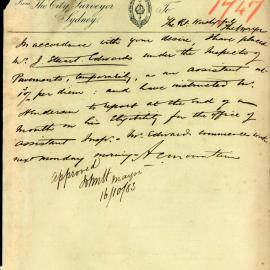 From The City Surveyor
Sydney.
To
The Rt. Worshipful
The Mayor
1947
In accordance with your desire I have placed
Mr. J. Stuart Edwards under the Inspector of
Pavements, temporarily, as an assistant at
per diem: and have instructed Mr.
Henderson to report at the end of a
Month on his Eligibility for the office of
assistant Inspr. Mr. Edwards commences work
next monday morning - A C Mountain
approved
mayor
16/10/83